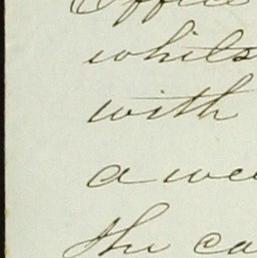 Office
whils
with
a wee
the ca